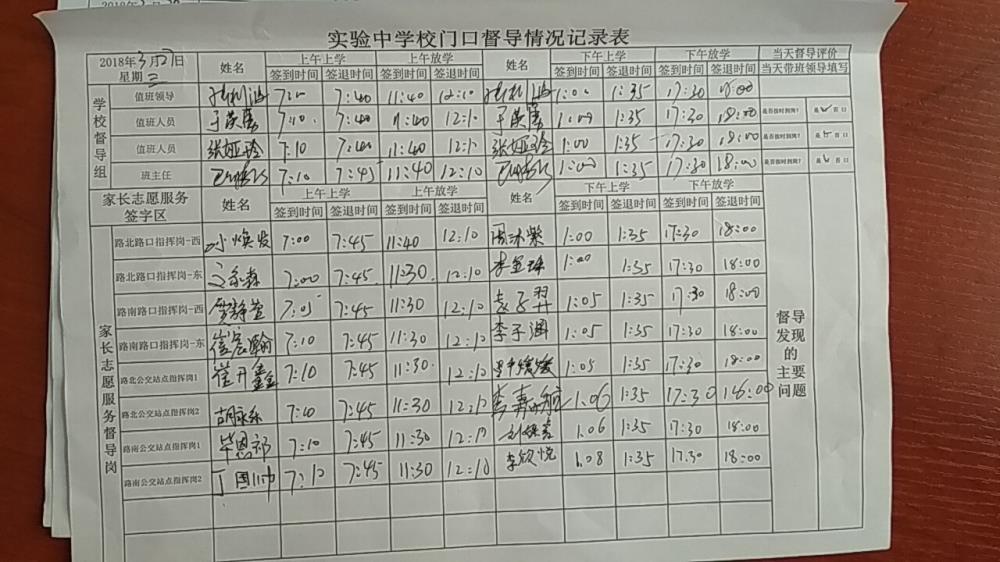 实验中学校门口督导情况记录表
2018年3月27日 星期二 姓名 上午上学 上午放学 姓名 下午上学 下午放学 当天督导评价
签到时间 签退时间 签到时间 签退时间 签到时间 签退时间 签到时间 签退时间 当天带班领导填写
学校督导组
值班领导 7:40 11:40 12:10 1:00 1:35 17:30 18:00
值班人员 7:10 7:40 11:40 12:10 1:00 1:35 17:30 18:00 是否按时到岗? 是 否口
值班人员 张娅玲 7:10 7:40 11:40 12:10 张娅玲 1:00 1:35 17:30 18:00 是否按时到岗? 是 否口
班主任 7:10 7:45 11:40 12:10 1:00 1:35 17:30 18:00 是否按时到岗? 是 否口
家长志愿服务签字区 姓名 上午上学 上午放学 姓名 下午上学 下午放学
签到时间 签退时间 签到时间 签退时间 签到时间 签退时间 签到时间 签退时间
家长志愿服务督导岗
路北路口指挥岗-西 7:00 7:45 11:40 12:10 1:00 1:35 17:30 18:00
路北路口指挥岗-东 7:00 7:45 11:30 12:10 1:00 1:35 17:30 18:00
路南路口指挥岗-西 7:05 7:45 11:30 12:10 1:05 1:35 17:30 18:00
路南路口指挥岗-东 崔宸瀚 7:10 7:45 11:30 12:10 李子涵 1:05 1:35 17:30 18:00
路北公交站点指挥岗1 崔开鑫 7:10 7:45 11:30 12:10 1:05 1:35 17:30 18:00
路北公交站点指挥岗2 7:10 7:45 11:30 12:10 李嘉航 1:06 1:35 17:30 18:00
路南公交站点指挥岗1 毕恩祁 7:10 7:45 11:30 12:10 1:06 1:35 17:30 18:00
路南公交站点指挥岗2 丁国帅 7:10 7:45 11:30 12:10 李欣悦 1:08 1:35 17:30 18:00
督导发现的主要问题